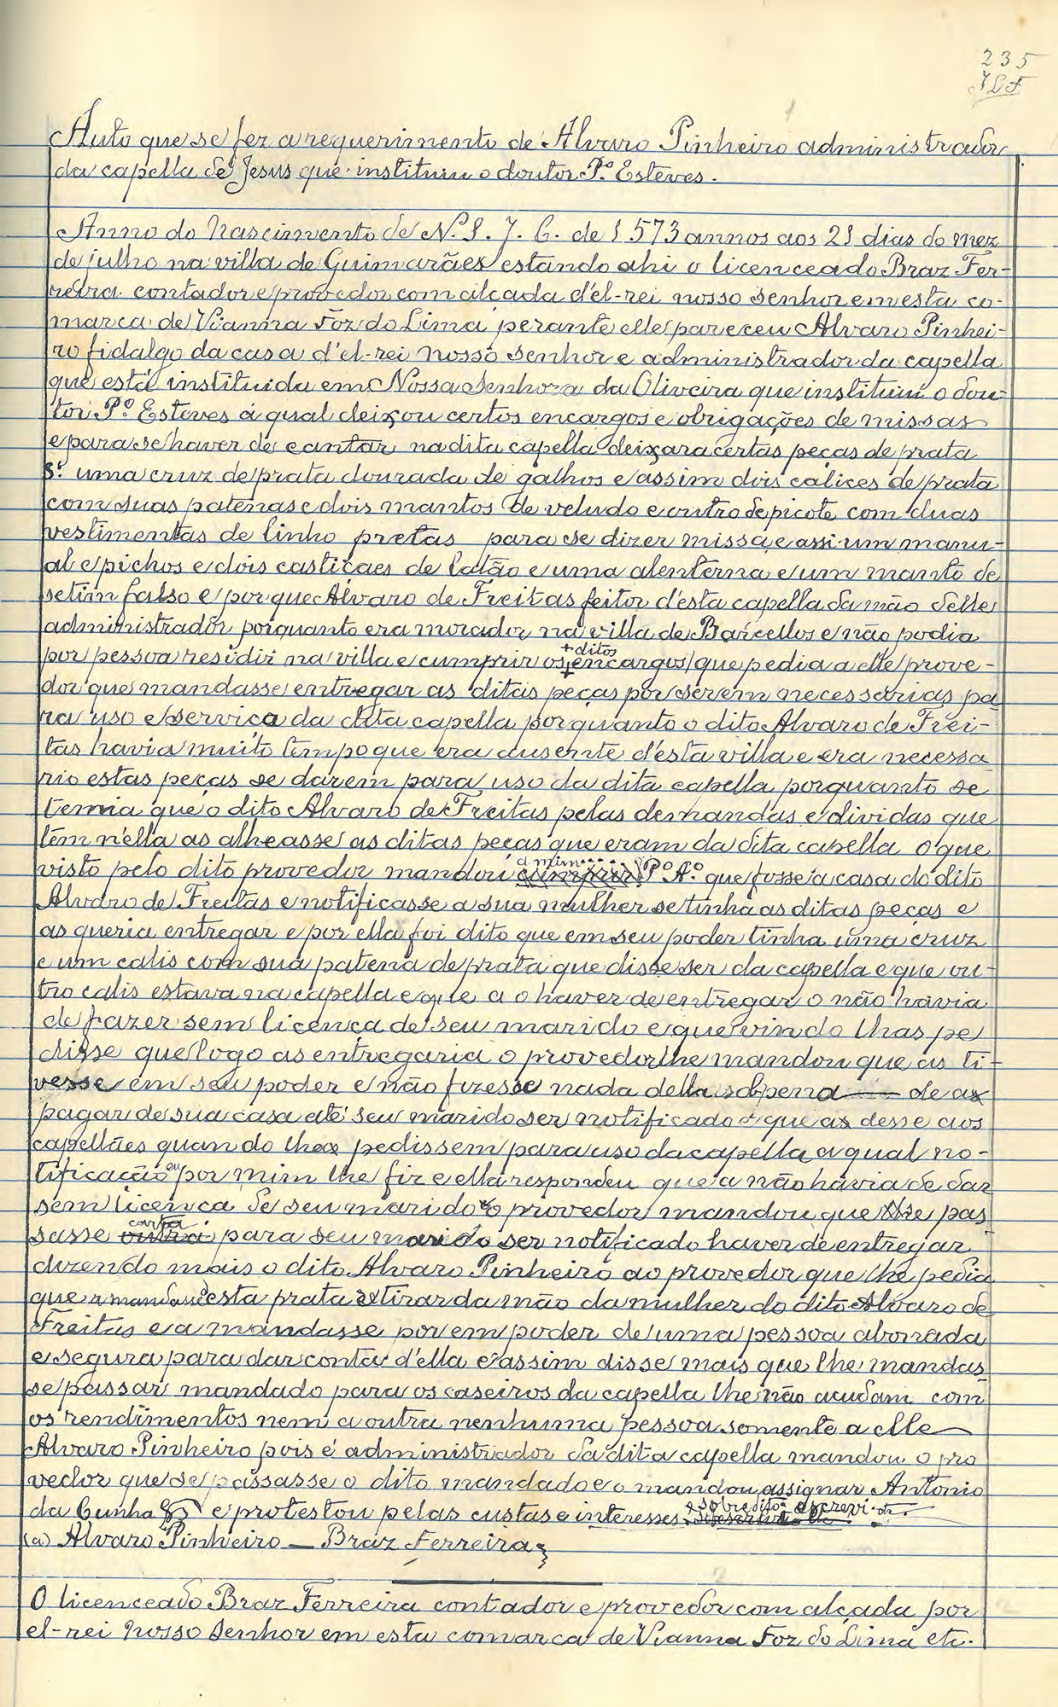 235
Auto que se fez a requerimento de Alvaro Pinheiro administrador
da capella de Jesus que instituiu o doutor P.º Esteves.
Anno do Nascimento de N. S. J. C. de 1573 annos aos 21 dias do mez
de julho na villa de Guimarães estando ahi o licenceado Braz Fer-
reira contador e provedor com alçada d'el-rei nosso senhor em esta co-
marca de Vianna Foz do Lima perante elle pareceu Alvaro Pinhei-
ro fidalgo da casa d'el-rei nosso senhor e administrador da capella
que está instituida em Nossa Senhora da Oliveira que instituiu o dou-
tor P.º Esteves á qual deixou certos encargos e obrigações de missas
e para se haver de cantar na dita capella deixara certas peças de prata
S.º uma cruz de prata dourada de galhos e assim dois calices de prata
com suas patenas e dois mantos de veludo e outro de picote com duas
vestimentas de linho pretas para se dizer missa e assi um manu-
al e pichos e dois castiçaes de latão e uma alenterna e um manto de
setim falso e por que Alvaro de Freitas feitor d'esta capella da mão d'elle
administrador porquanto era morador na villa de Barcellos e não podia
por pessoa residir na villa e cumprir os ditos encargos que pedia a elle prove-
dor que mandasse entregar as ditas peças por serem necessarias pa
ra uso e serviço da dita capella porquanto o dito Alvaro de Frei-
tas havia muito tempo que era ausente d'esta villa e era necessa
rio estas peças se darem para uso da dita capella porquanto se
temia que o dito Alvaro de Freitas pelas demandas e dividas que
tem n'ella as alheasse as ditas peças que eram da dita capella o que
visto pelo dito provedor mandou a mim P.º A.º que fosse a casa do dito
Alvaro de Freitas e notificasse a sua mulher se tinha as ditas peças e
as queria entregar e por ella foi dito que em seu poder tinha uma cruz
e um calis com sua patena de prata que disse ser da capella e que ou-
tro calis estava na capella e que a o haver de entregar o não havia
de fazer sem licença de seu marido e que vindo lhas pe
disse que logo as entregaria o provedor lhe mandou que as ti-
vesse em seu poder e não fizesse nada della sob pena de as
pagar de sua casa até seu marido ser notificado e que as desse aos
capellães quando lhas pedissem para uso da capella a qual no-
tificação eu por mim lhe fiz e ella respondeu que a não havia de dar
sem licença de seu marido e o provedor mandou que lhe pas
sasse carta para seu marido ser notificado haver de entregar
dizendo mais o dito Alvaro Pinheiro ao provedor que lhe pedia
que a mandasse esta prata tirar da mão da mulher do dito Alvaro de
Freitas e a mandasse por em poder de uma pessoa abonada
e segura para dar conta d'ella e assim disse mais que lhe mandas
se passar mandado para os caseiros da capella lhe não acudam com
os rendimentos nem a outra nenhuma pessoa somente a elle
Alvaro Pinheiro pois é administrador da dita capella mandou o pro
vedor que se passasse o dito mandado e o mandou assignar Antonio
da Cunha e protestou pelas custas e interesses sobredito escrevi
(a) Alvaro Pinheiro — Braz Ferreira
O licenceado Braz Ferreira contador e provedor com alçada por
el-rei nosso senhor em esta comarca de Vianna Foz do Lima etc.